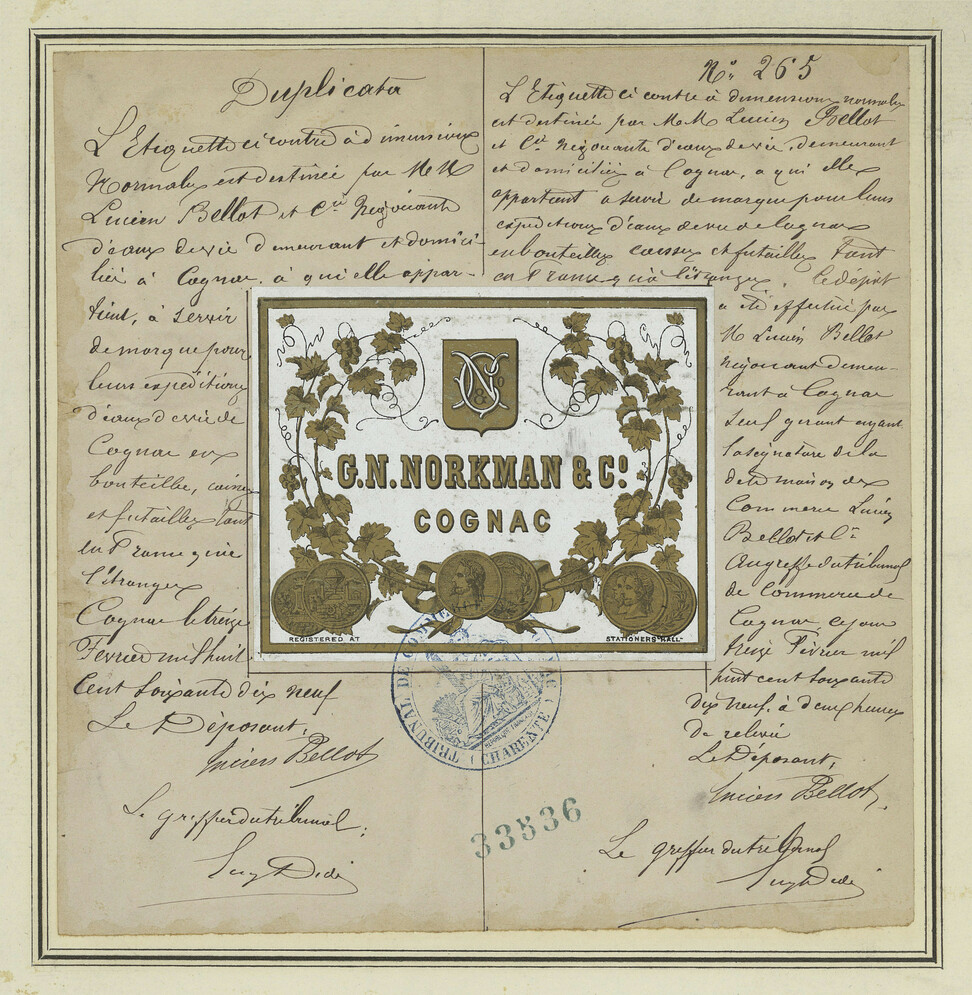 Duplicata
L'Etiquette ci contre à dimensions
Normales est destinée par MM
Lucien Bellot et Cie Négociants
d'eaux de vie demeurant et domici-
liés à Cognac, à qui elle appar-
tient, à servir
de marque pour
leurs expéditions
d'eaux de vie de
Cognac en
bouteilles, caisses
et futailles tant
en France qu'à
l'étranger
Cognac le treize
Février mil huit
Cent Soixante dix neuf
Le Déposant,
Lucien Bellot
Le greffier du tribunal,
No. 265
L'Etiquette ci contre à dimensions normales
est destinée par MM Lucien Bellot
et Cie Négociants d'eaux de vie, demeurant
et domiciliés à Cognac, à qui elle
appartient à servir de marque pour leurs
expéditions d'eaux de vie de Cognac
en bouteilles caisses et futailles tant
en France qu'à l'étranger. Le dépôt
a été effectué par
M Lucien Bellot
négociant demeu-
rant à Cognac
seul gérant ayant
la signature de la
dite maison de
Commerce Lucien
Bellot et Cie
Au greffe du tribunal
de Commerce de
Cognac ce jour
treize Février mil
huit cent soixante
dix neuf, à deux heures
de relevée
Le Déposant,
Lucien Bellot
Le greffier du tribunal
G.N. NORKMAN & Co.
COGNAC
REGISTERED AT
STATIONERS' HALL
TRIBUNAL DE COMMERCE
(CHARENTE)
33836